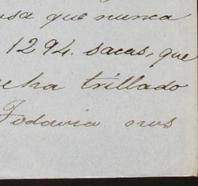 que nunca
1294. sacas, que
ha trillado
Todavia nos